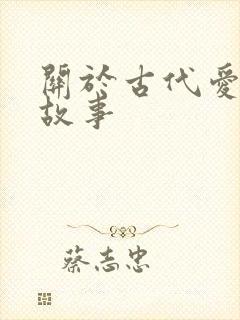 關於古代愛
故事
蔡志忠